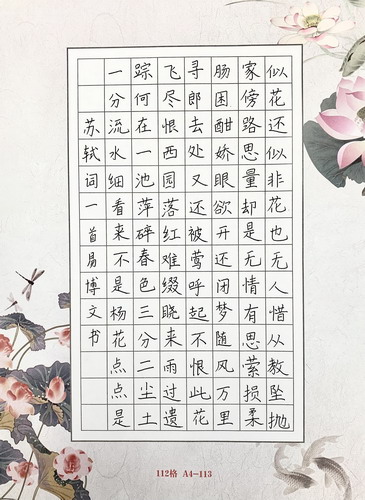 似花还似非花也无人惜从教坠抛
家傍路思量却是无情有思萦损柔
肠困酣娇眼欲开还闭梦随风万里
寻郎去处又还被莺呼起不恨此花
飞尽恨西园落红难缀晓来雨过遗
踪何在一池萍碎春色三分二尘土
一分流水细看来不是杨花点点是
苏轼词一首易博文书
112格 A4-113